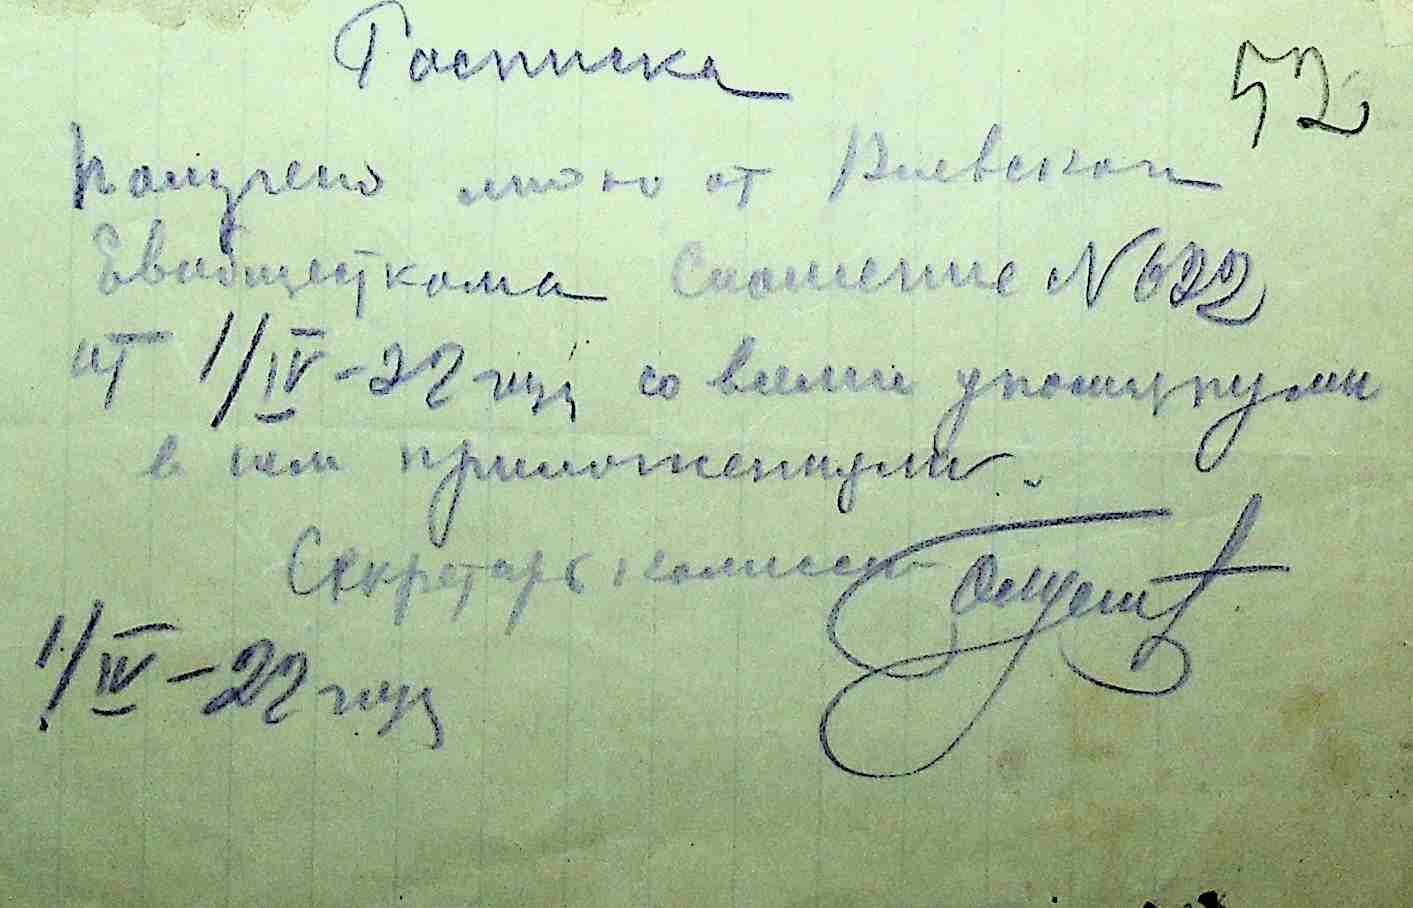 Росписка
52
Получено мною от Киевской
Евобщесткома Сношение N 622
от 1/IV-22 года со всеми упомянутыми
в нем приложениями.
Секретарь комиссии
1/IV-22 года